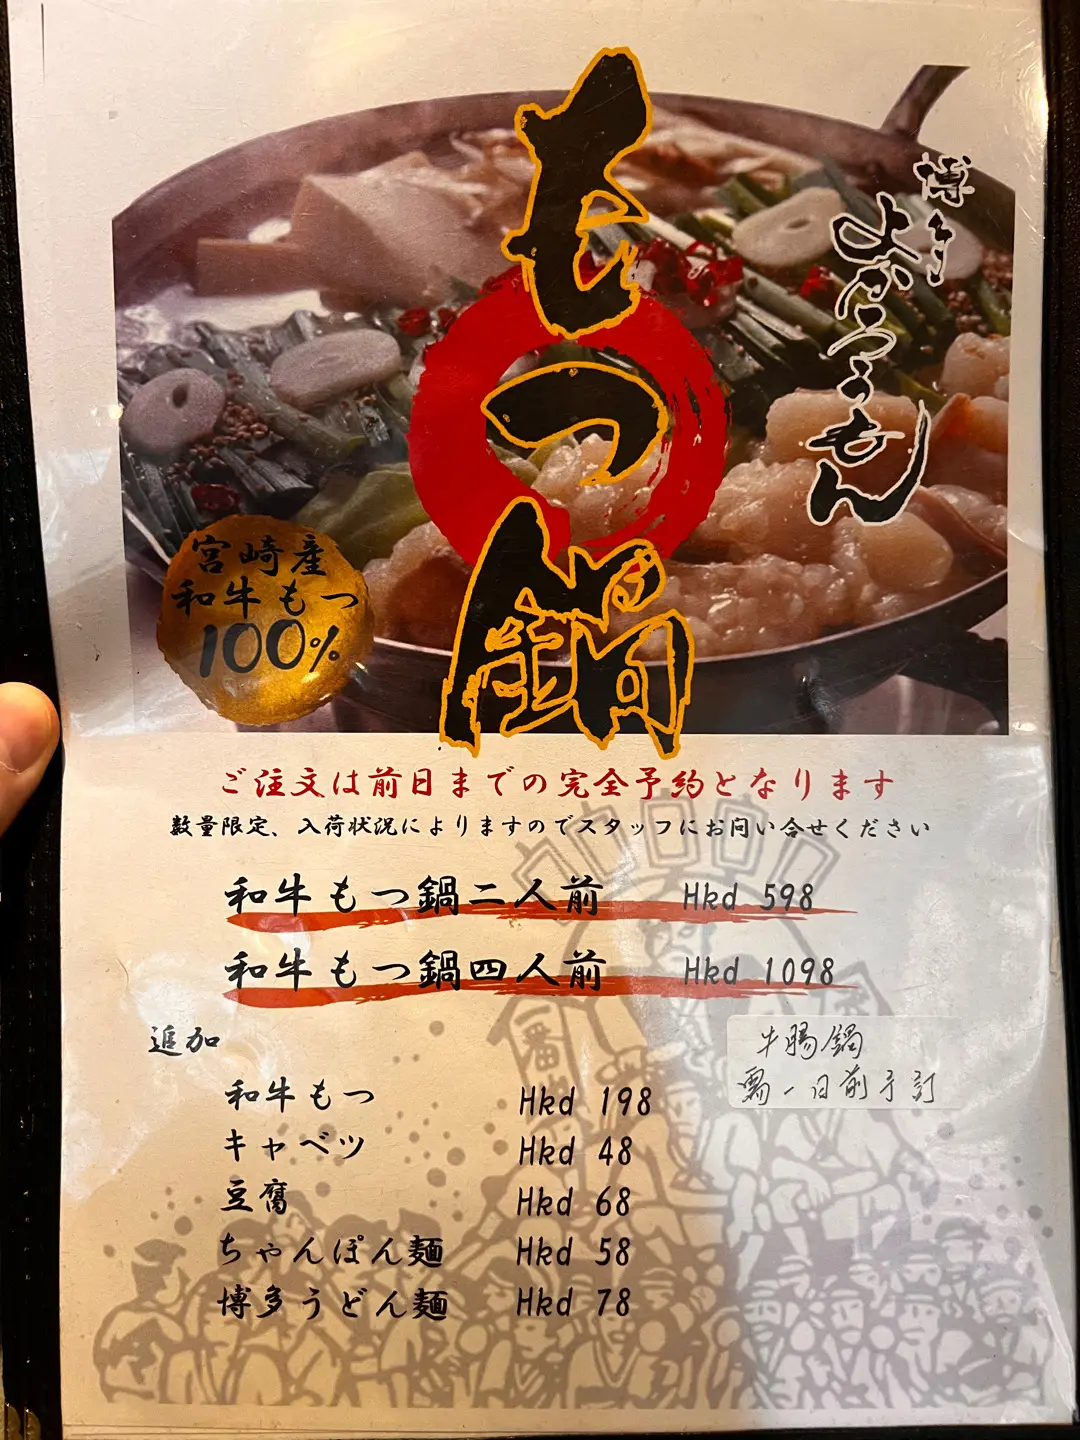 もつ鍋
博多
よかろうもん
宮崎産
和牛もつ
100%
ご注文は前日までの完全予約となります
数量限定、入荷状況によりますのでスタッフにお問い合せください
和牛もつ鍋二人前 Hkd 598
和牛もつ鍋四人前 Hkd 1098
追加
牛腸鍋
需一日前予訂
和牛もつ Hkd 198
キャベツ Hkd 48
豆腐 Hkd 68
ちゃんぽん麺 Hkd 58
博多うどん麺 Hkd 78
一番